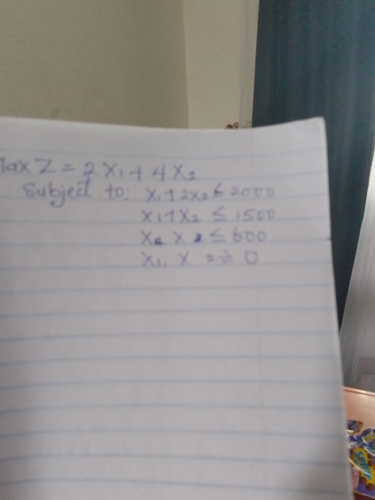 Max Z = 2X1 + 4X2
Subject to: X1 + 2X2 ≤ 2000
X1 + X2 ≤ 1500
X2 ≤ 600
X1, X2 ≥ 0